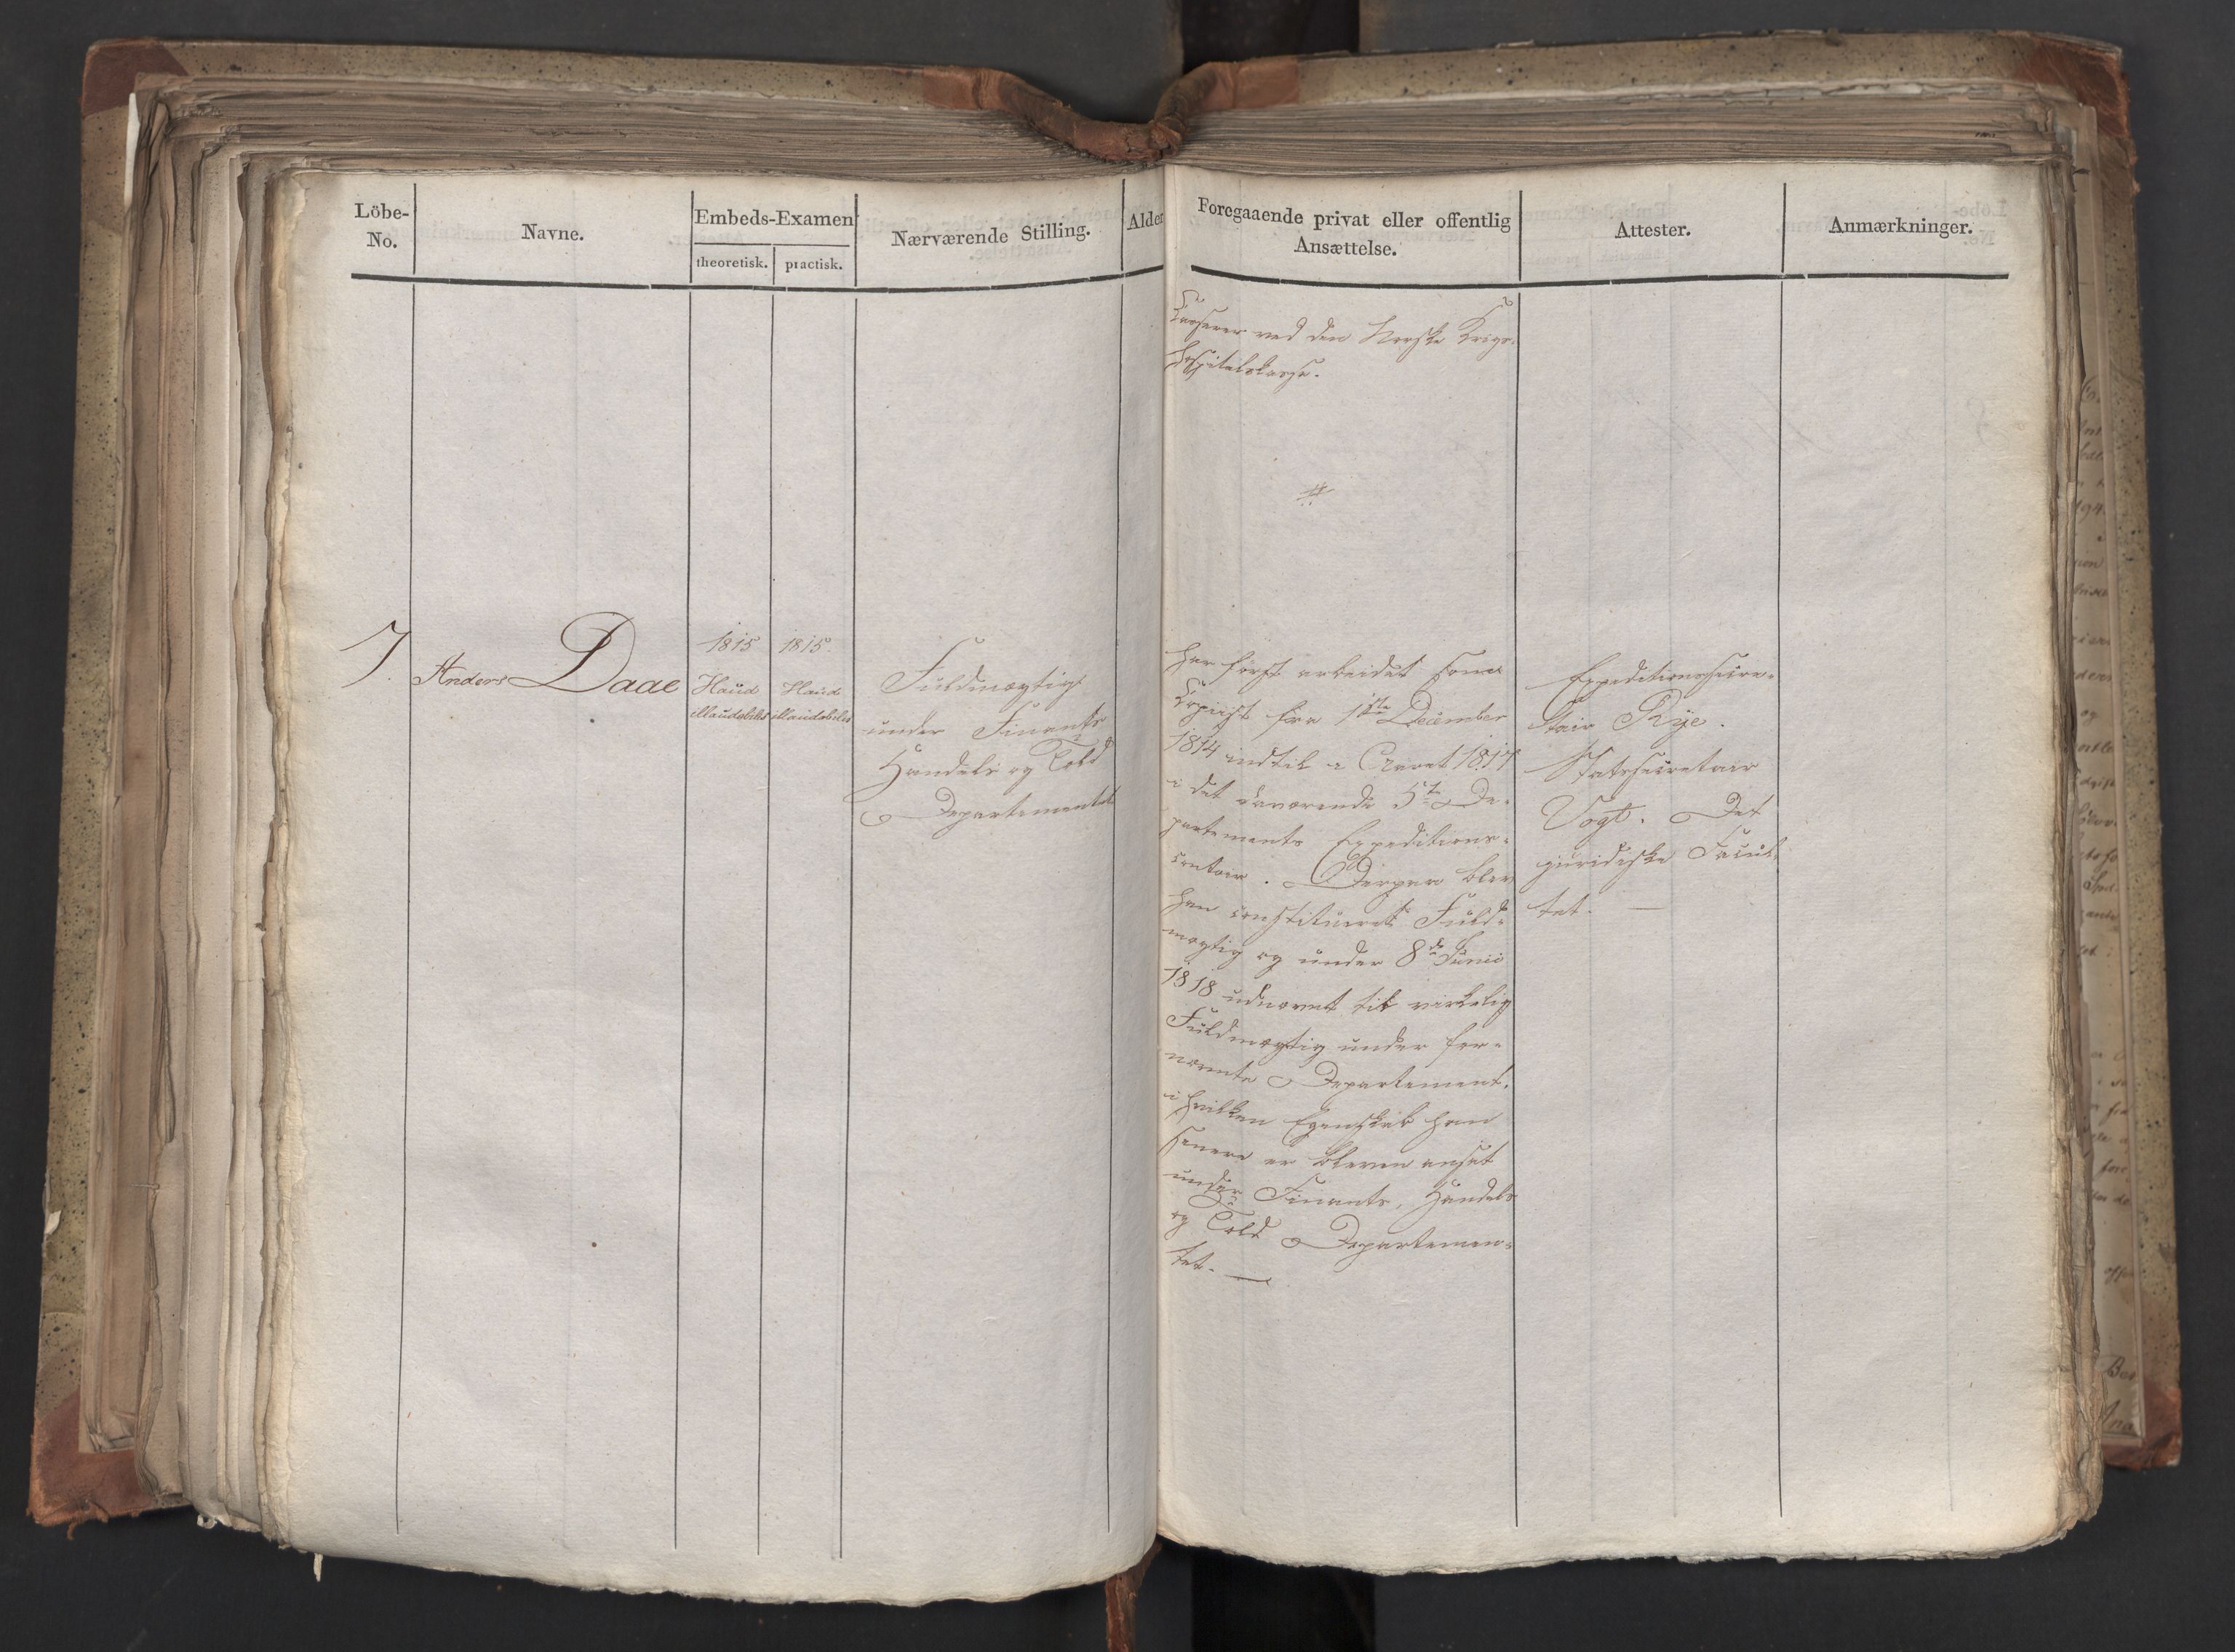 Löbe-
No.
Navne.
Embeds-Examen
theoretisk.
practisk.
Nærværende Stilling.
Alder
7.
Anders Daae
1815
Haud
illaudabilis
1815.
Haud
illaudabilis
Fuldmægtig
under Finants
Handels og Told
Departementet
Foregaaende privat eller offentlig
Ansættelse.
Attester.
Anmærkninger.
Casserer ved den Norske Krigs-
hospitalskasse.
Har först arbeidet som
Copiist fra 1ste December
1814 indtil i Aaret 1817
i det daværende 5te De-
partements Expeditions-
contoir. Derpaa blev
han constitueret Fuld-
mægtig og under 8de Junii
1818 udnævnt til virkelig
Fuldmægtig under for-
nævnte Departement,
i hvilken Egenskab han
senere er bleven ansat
under Finants, Handels
og Told Departemen-
tet. —
Expeditionssecre-
tair Rye.
Statssecretair
Vogt. Det
juridiske Facul-
tet. —